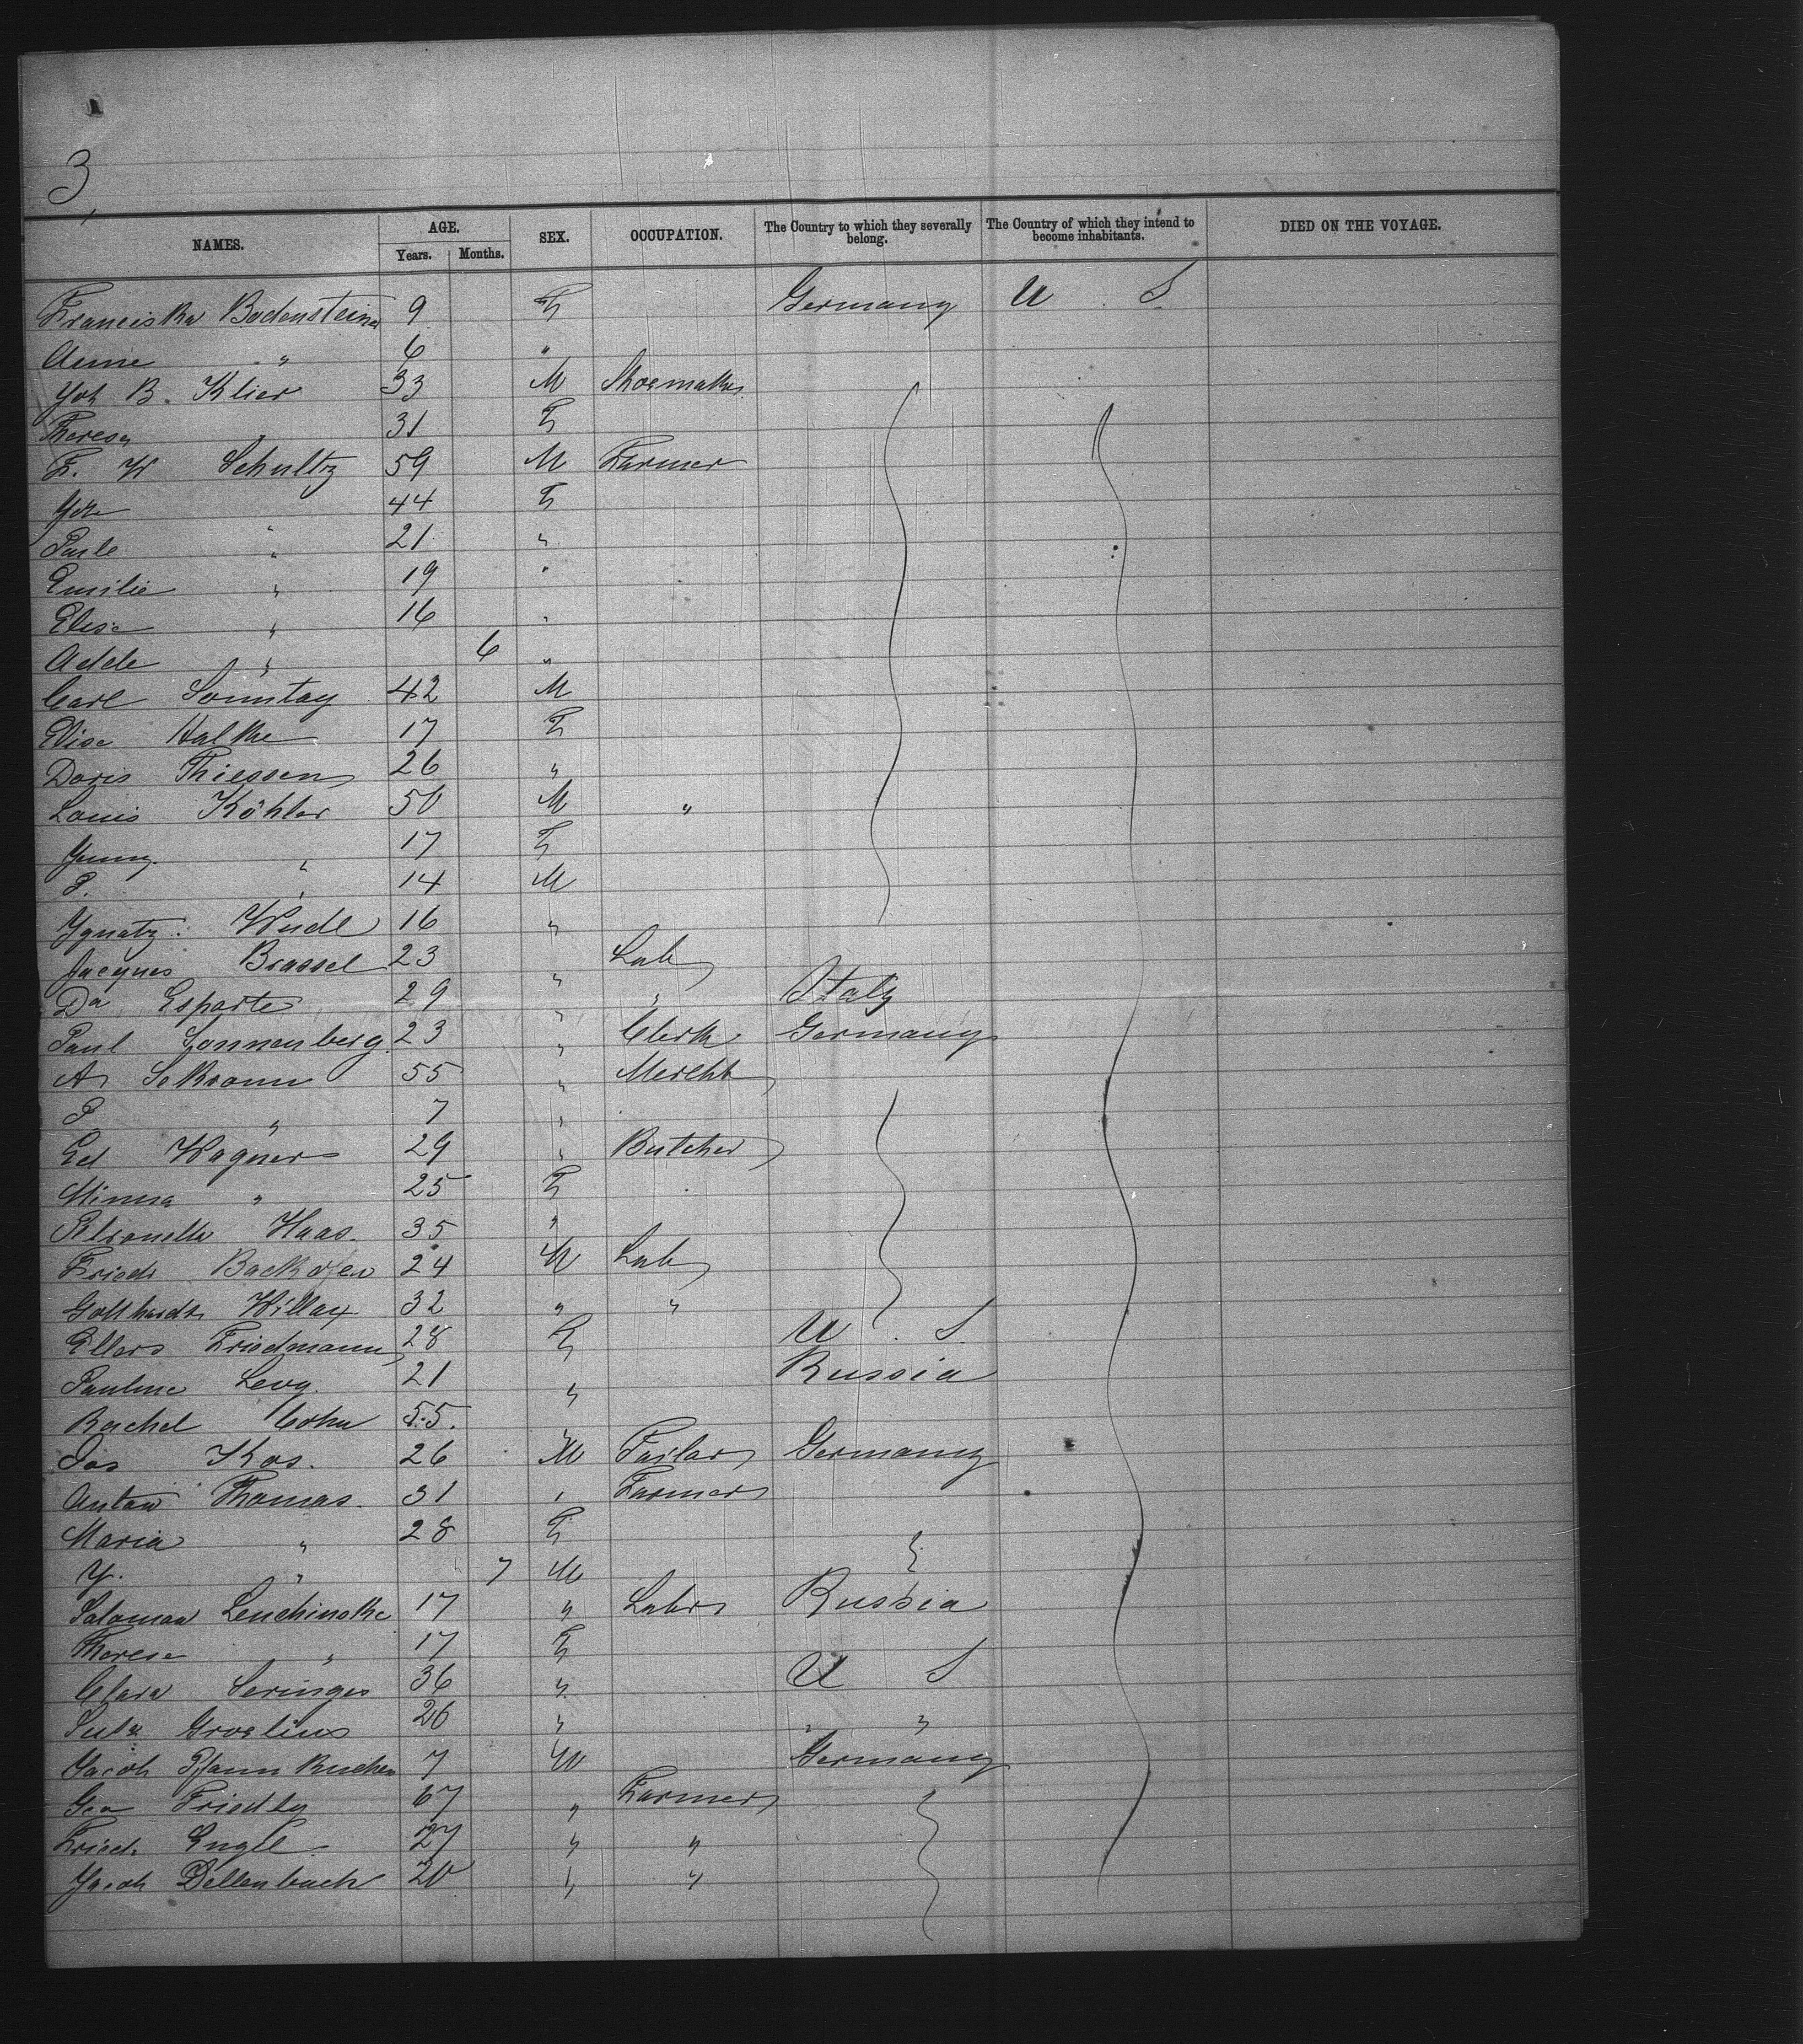 3,
NAMES. AGE. Years. Months. SEX. OCCUPATION. The Country to which they severally belong. The Country of which they intend to become inhabitants. DIED ON THE VOYAGE.
Franciska Bodensteiner 9 F Germany U. S.
Anne " 6 "
Joh B. Klier 33 M Shoemaker
Theresa " 31 F
F. W Schultz 59 M Farmer
44 F
" 21 "
Emilie " 19 "
Elise " 16 "
Adde " 6 "
Carl Sonntag 42 M
Elise Halke 17 F
Doris Thiessen 26 "
Louis Köhler 50 M "
Jenny " 17 F
P. " 14 M
Ygnatz Wudl 16 "
Jacques Brassel 23 " Lab
Da Esparte 29 " " Italy
Paul Sonnenberg 23 " Clerk Germany
A 55 " Mercht
P " 7 "
Ed Wagner 29 " Butcher
Minna " 25 F
Petronella Haas. 35 "
Friedr Backofen 24 M Lab
Gotthardt 32 " "
Ellers Friedmann 28 F U. S.
Pauline Levy. 21 " Russia
Rachel Cohn 55. "
Jos Kos. 26 M Tailor Germany
Anton Thomas. 31 " Farmer
Maria " 28 F
Y. " 7 M
Saloman 17 " Labr Russia
Therese " 17 F
Clara Seringer 36 " U S
26 " " "
Jacob 7 M Germany
Geo Friedly 67 " Farmer
Friedr Engel 27 " "
Jacob Dellenbach 20 " "